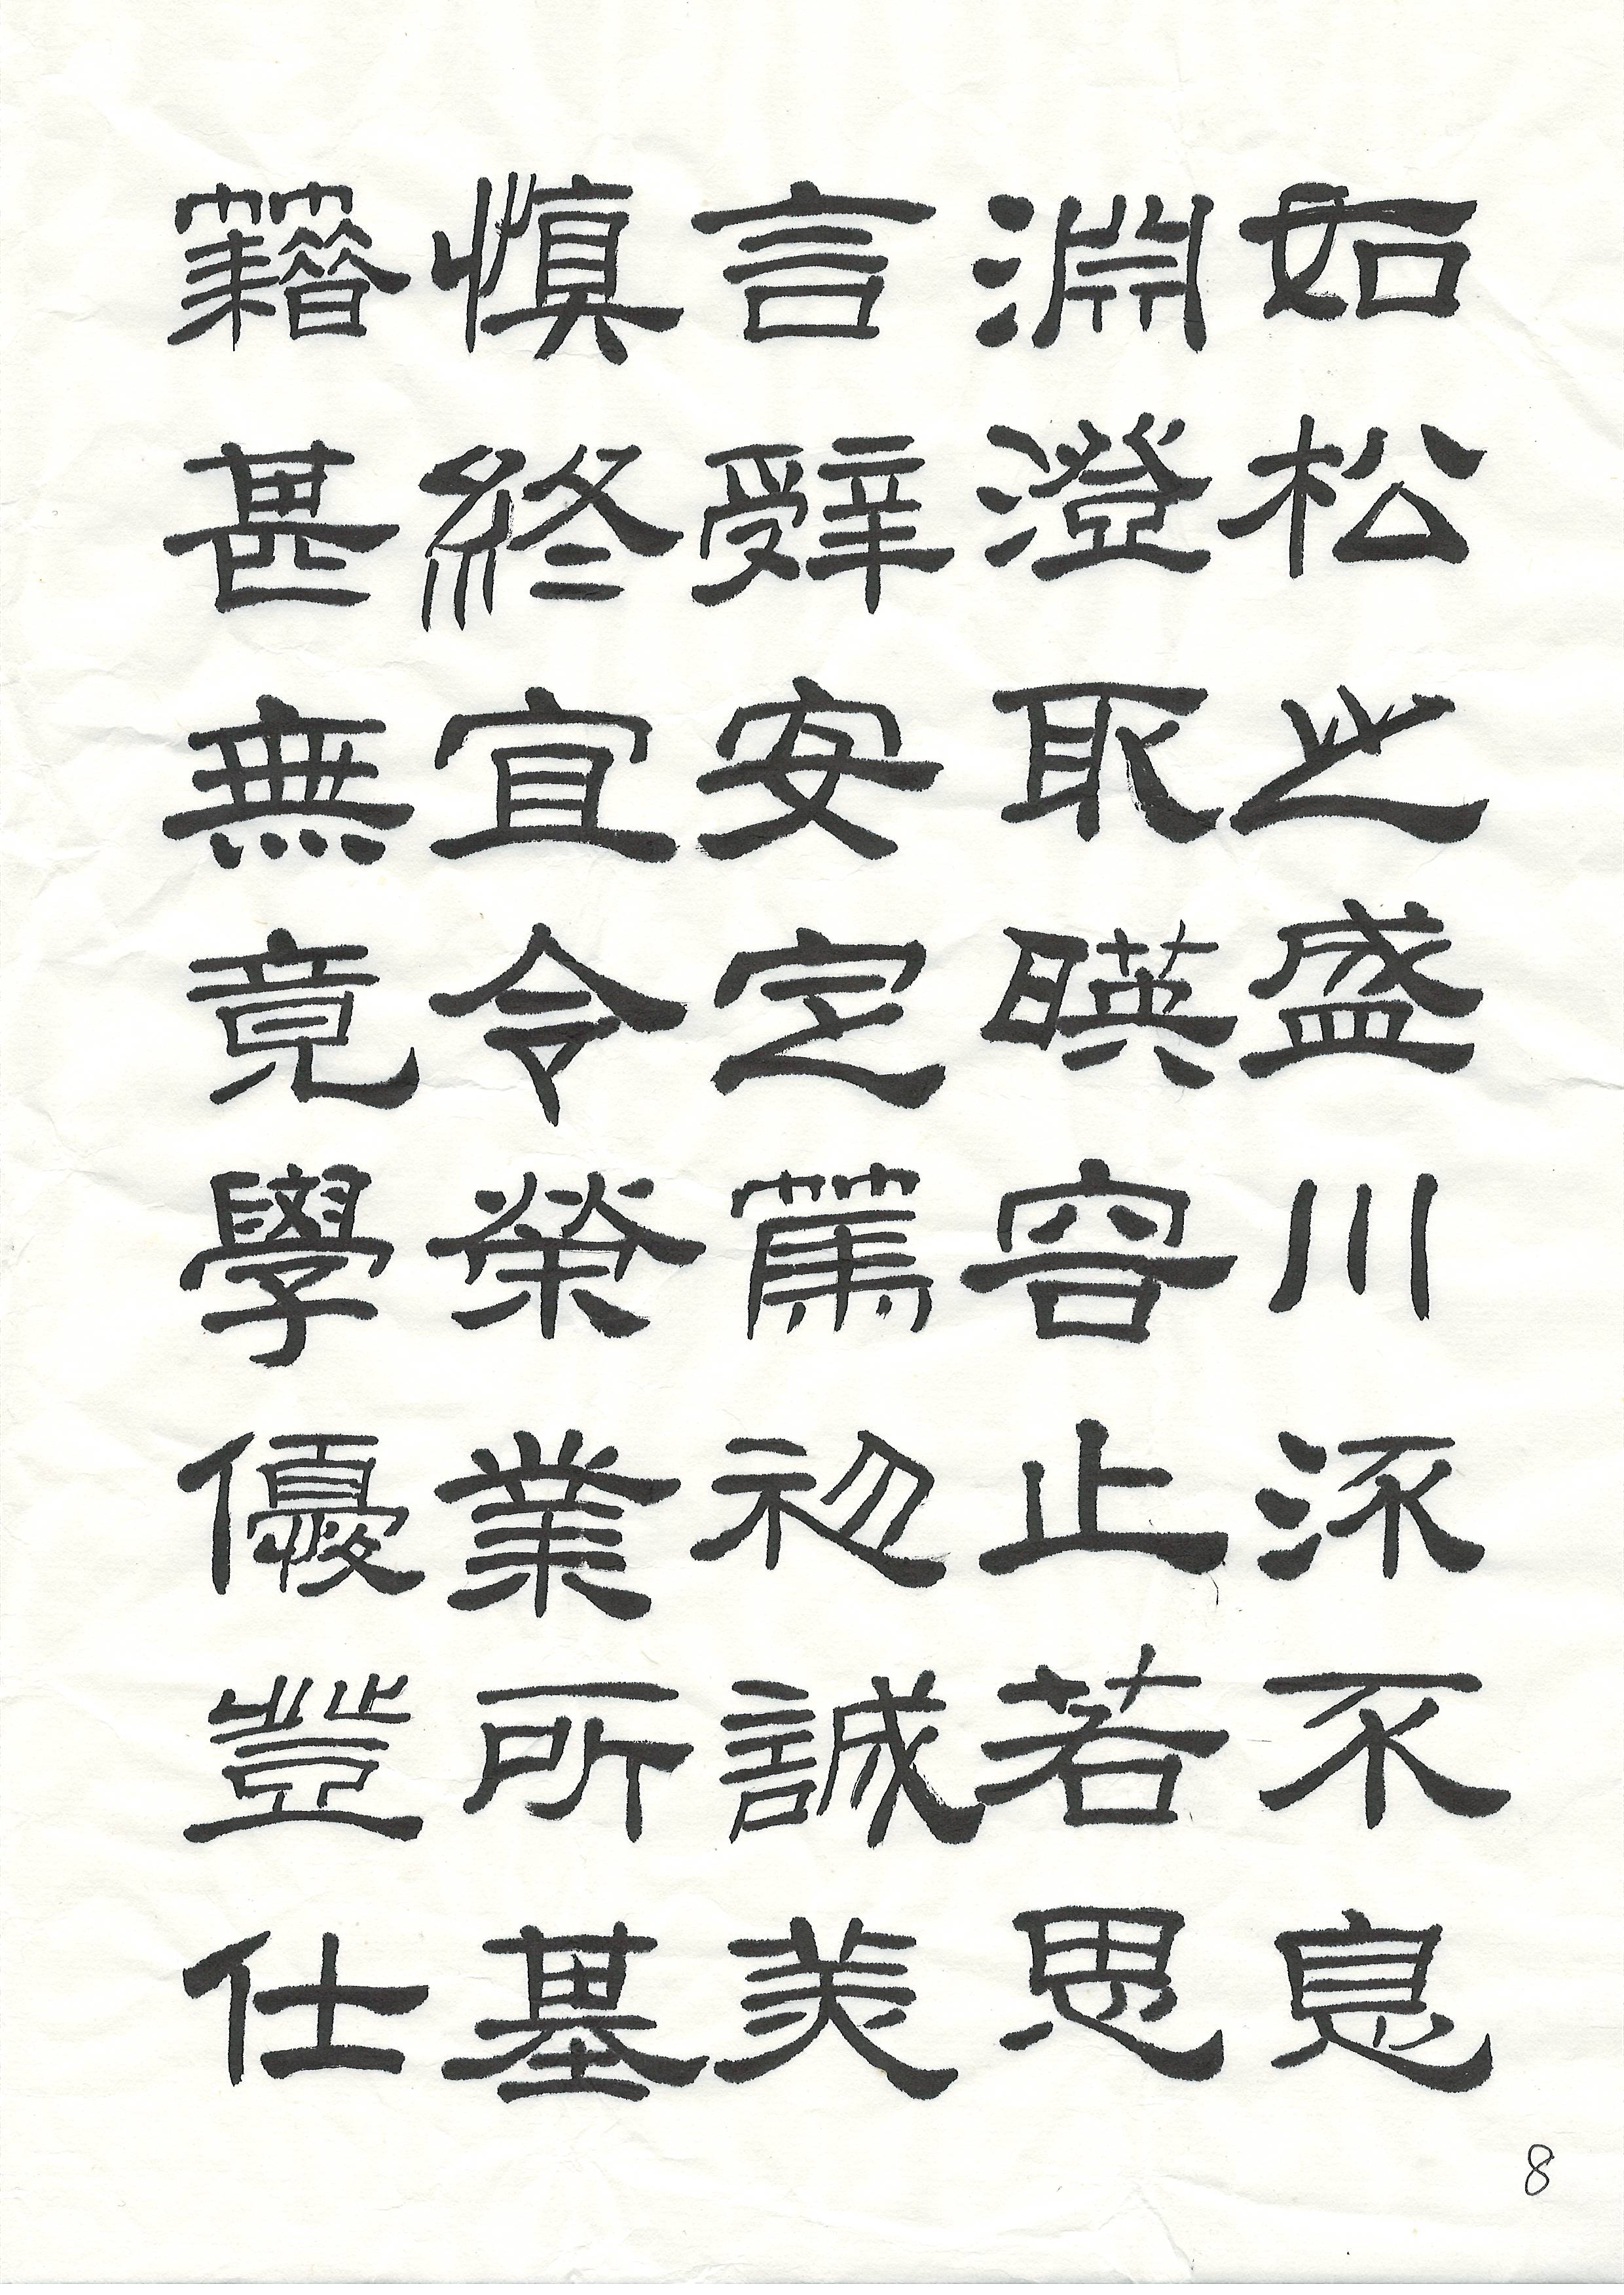 如松之盛川流不息
淵澄取暎容止若思
言辭安定篤初誠美
慎終宜令榮業所基
籍甚無竟學優登仕
8